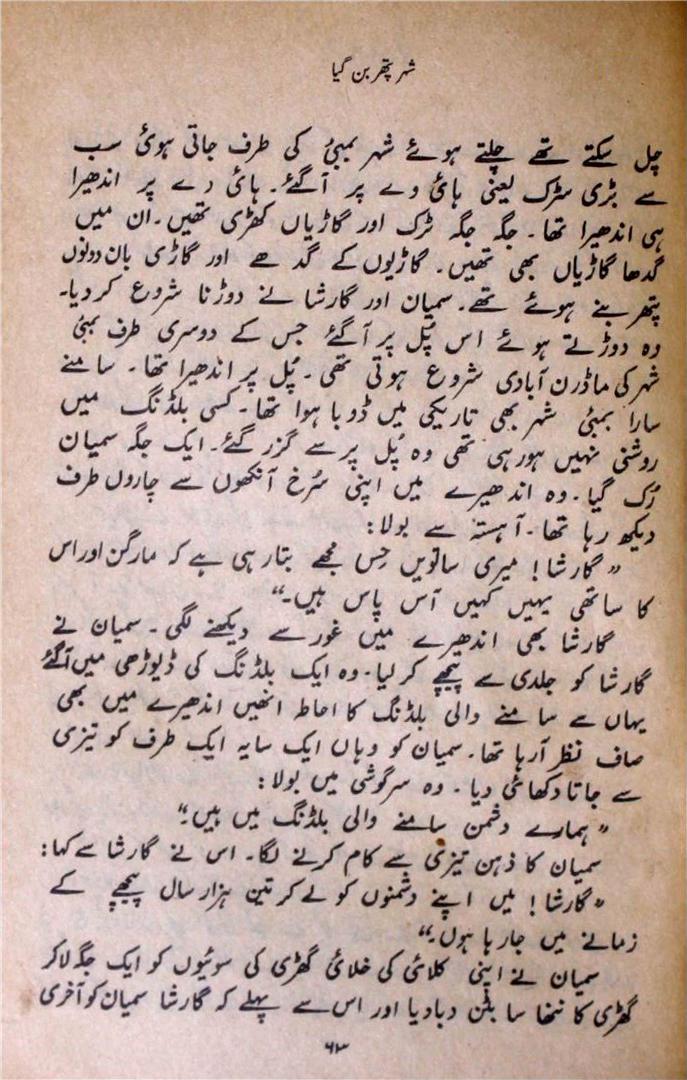 شہر پتھر بن گیا
چل سکتے تھے چلتے ہوئے شہر بمبئی کی طرف جاتی ہوئی سب
سے بڑی سڑک یعنی ہائی وے پر آگئے۔ ہائی وے پر اندھیرا
ہی اندھیرا تھا۔ جگہ جگہ ٹرک اور گاڑیاں کھڑی تھیں۔ ان میں
گدھا گاڑیاں بھی تھیں۔ گاڑیوں کے گدھے اور گاڑی بان دونوں
پتھر بنے ہوئے تھے۔ سمیان اور گارشا نے دوڑنا شروع کر دیا۔
وہ دوڑتے ہوئے اس پُل پر آگئے جس کے دوسری طرف بمبئی
شہر کی ماڈرن آبادی شروع ہوتی تھی۔ پُل پر اندھیرا تھا۔ سامنے
سارا بمبئی شہر بھی تاریکی میں ڈوبا ہوا تھا۔ کسی بلڈنگ میں
روشنی نہیں ہو رہی تھی وہ پُل پر سے گزر گئے۔ ایک جگہ سمیان
رُک گیا۔ وہ اندھیرے میں اپنی سُرخ آنکھوں سے چاروں طرف
دیکھ رہا تھا۔ آہستہ سے بولا:
"گارشا! میری ساتویں حِس مجھے بتا رہی ہے کہ مارگن اور اس
کا ساتھی یہیں کہیں آس پاس ہیں۔"
گارشا بھی اندھیرے میں غور سے دیکھنے لگی۔ سمیان نے
گارشا کو جلدی سے پیچھے کر لیا۔ وہ ایک بلڈنگ کی ڈیوڑھی میں آگئے
یہاں سے سامنے والی بلڈنگ کا احاطہ انھیں اندھیرے میں بھی
صاف نظر آرہا تھا۔ سمیان کو وہاں ایک سایہ ایک طرف کو تیزی
سے جاتا دکھائی دیا۔ وہ سرگوشی میں بولا:
"ہمارے دشمن سامنے والی بلڈنگ میں ہیں۔"
سمیان کا ذہن تیزی سے کام کرنے لگا۔ اس نے گارشا سے کہا:
"گارشا! میں اپنے دشمنوں کو لے کر تین ہزار سال پیچھے کے
زمانے میں جا رہا ہوں۔"
سمیان نے اپنی کلائی کی خلائی گھڑی کی سوئیوں کو ایک جگہ لاکر
گھڑی کا ننھا سا بٹن دبا دیا اور اس سے پہلے کہ گارشا سمیان کو آخری
۶۳